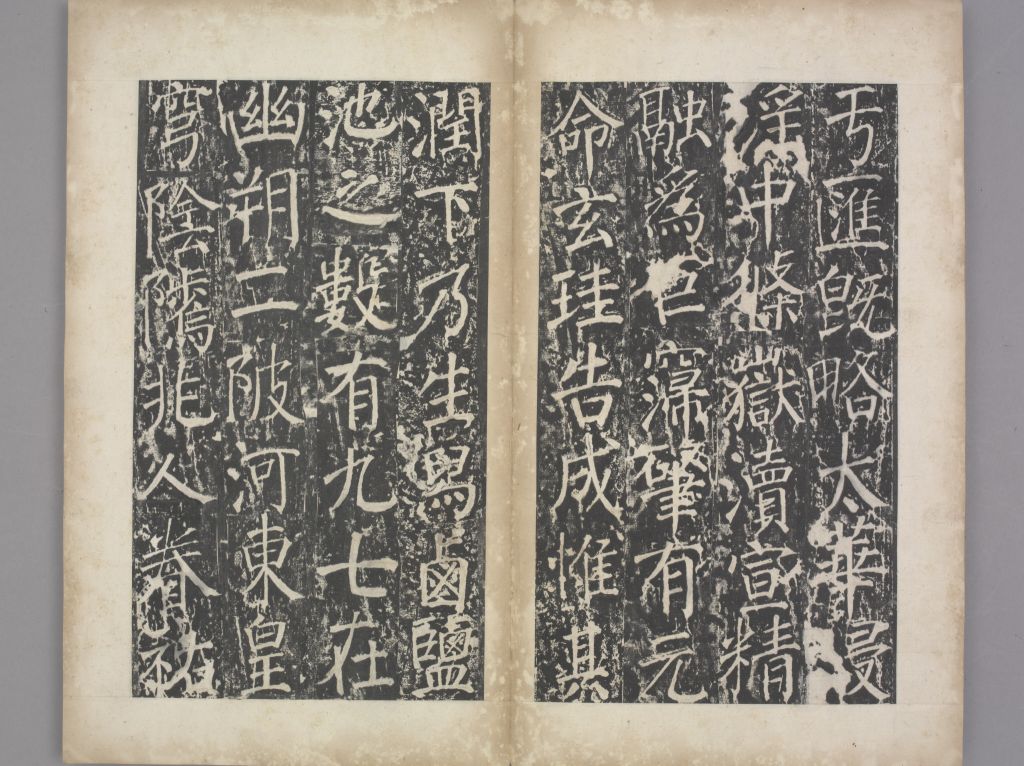 亏匯既略太華浸
淫中條嶽瀆宣精
融為巨寖肇有元
命玄珪告成惟其
潤下乃生舄鹵鹽
池之數有九七在
幽朔二陂河東皇
穹陰騭兆人眷祐